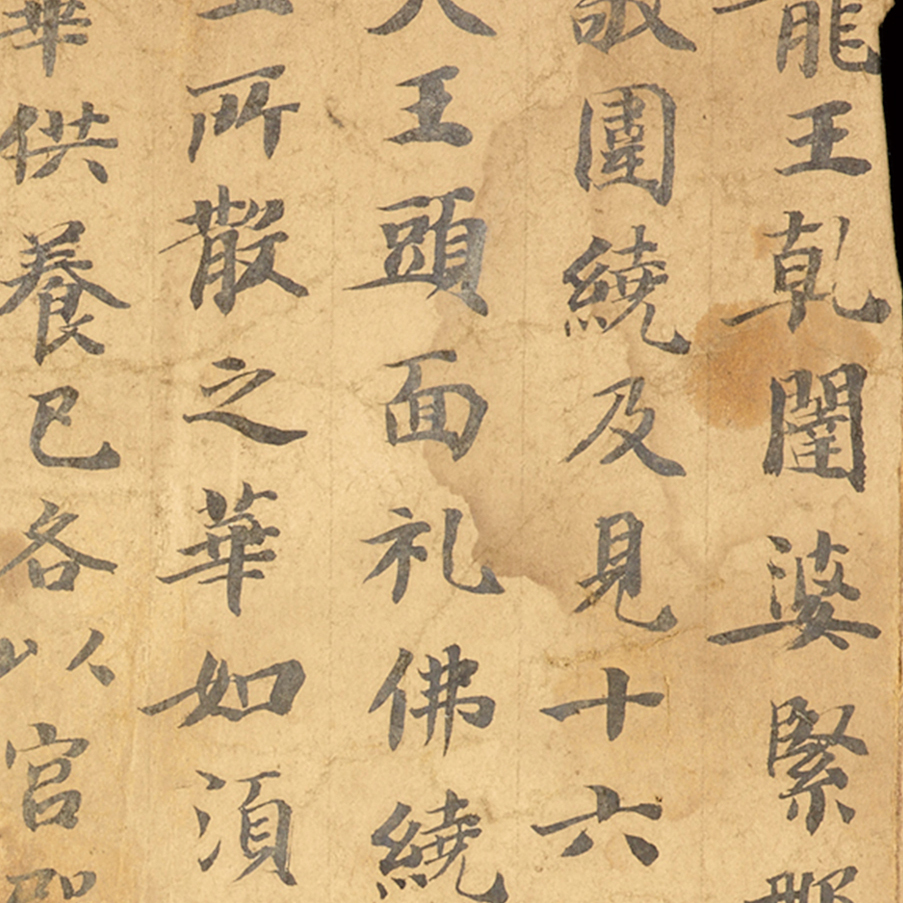 龍王乹闥婆緊那
敬圍繞及見十六
天王頭面礼佛繞
上所散之華如須
華供養已各以宮